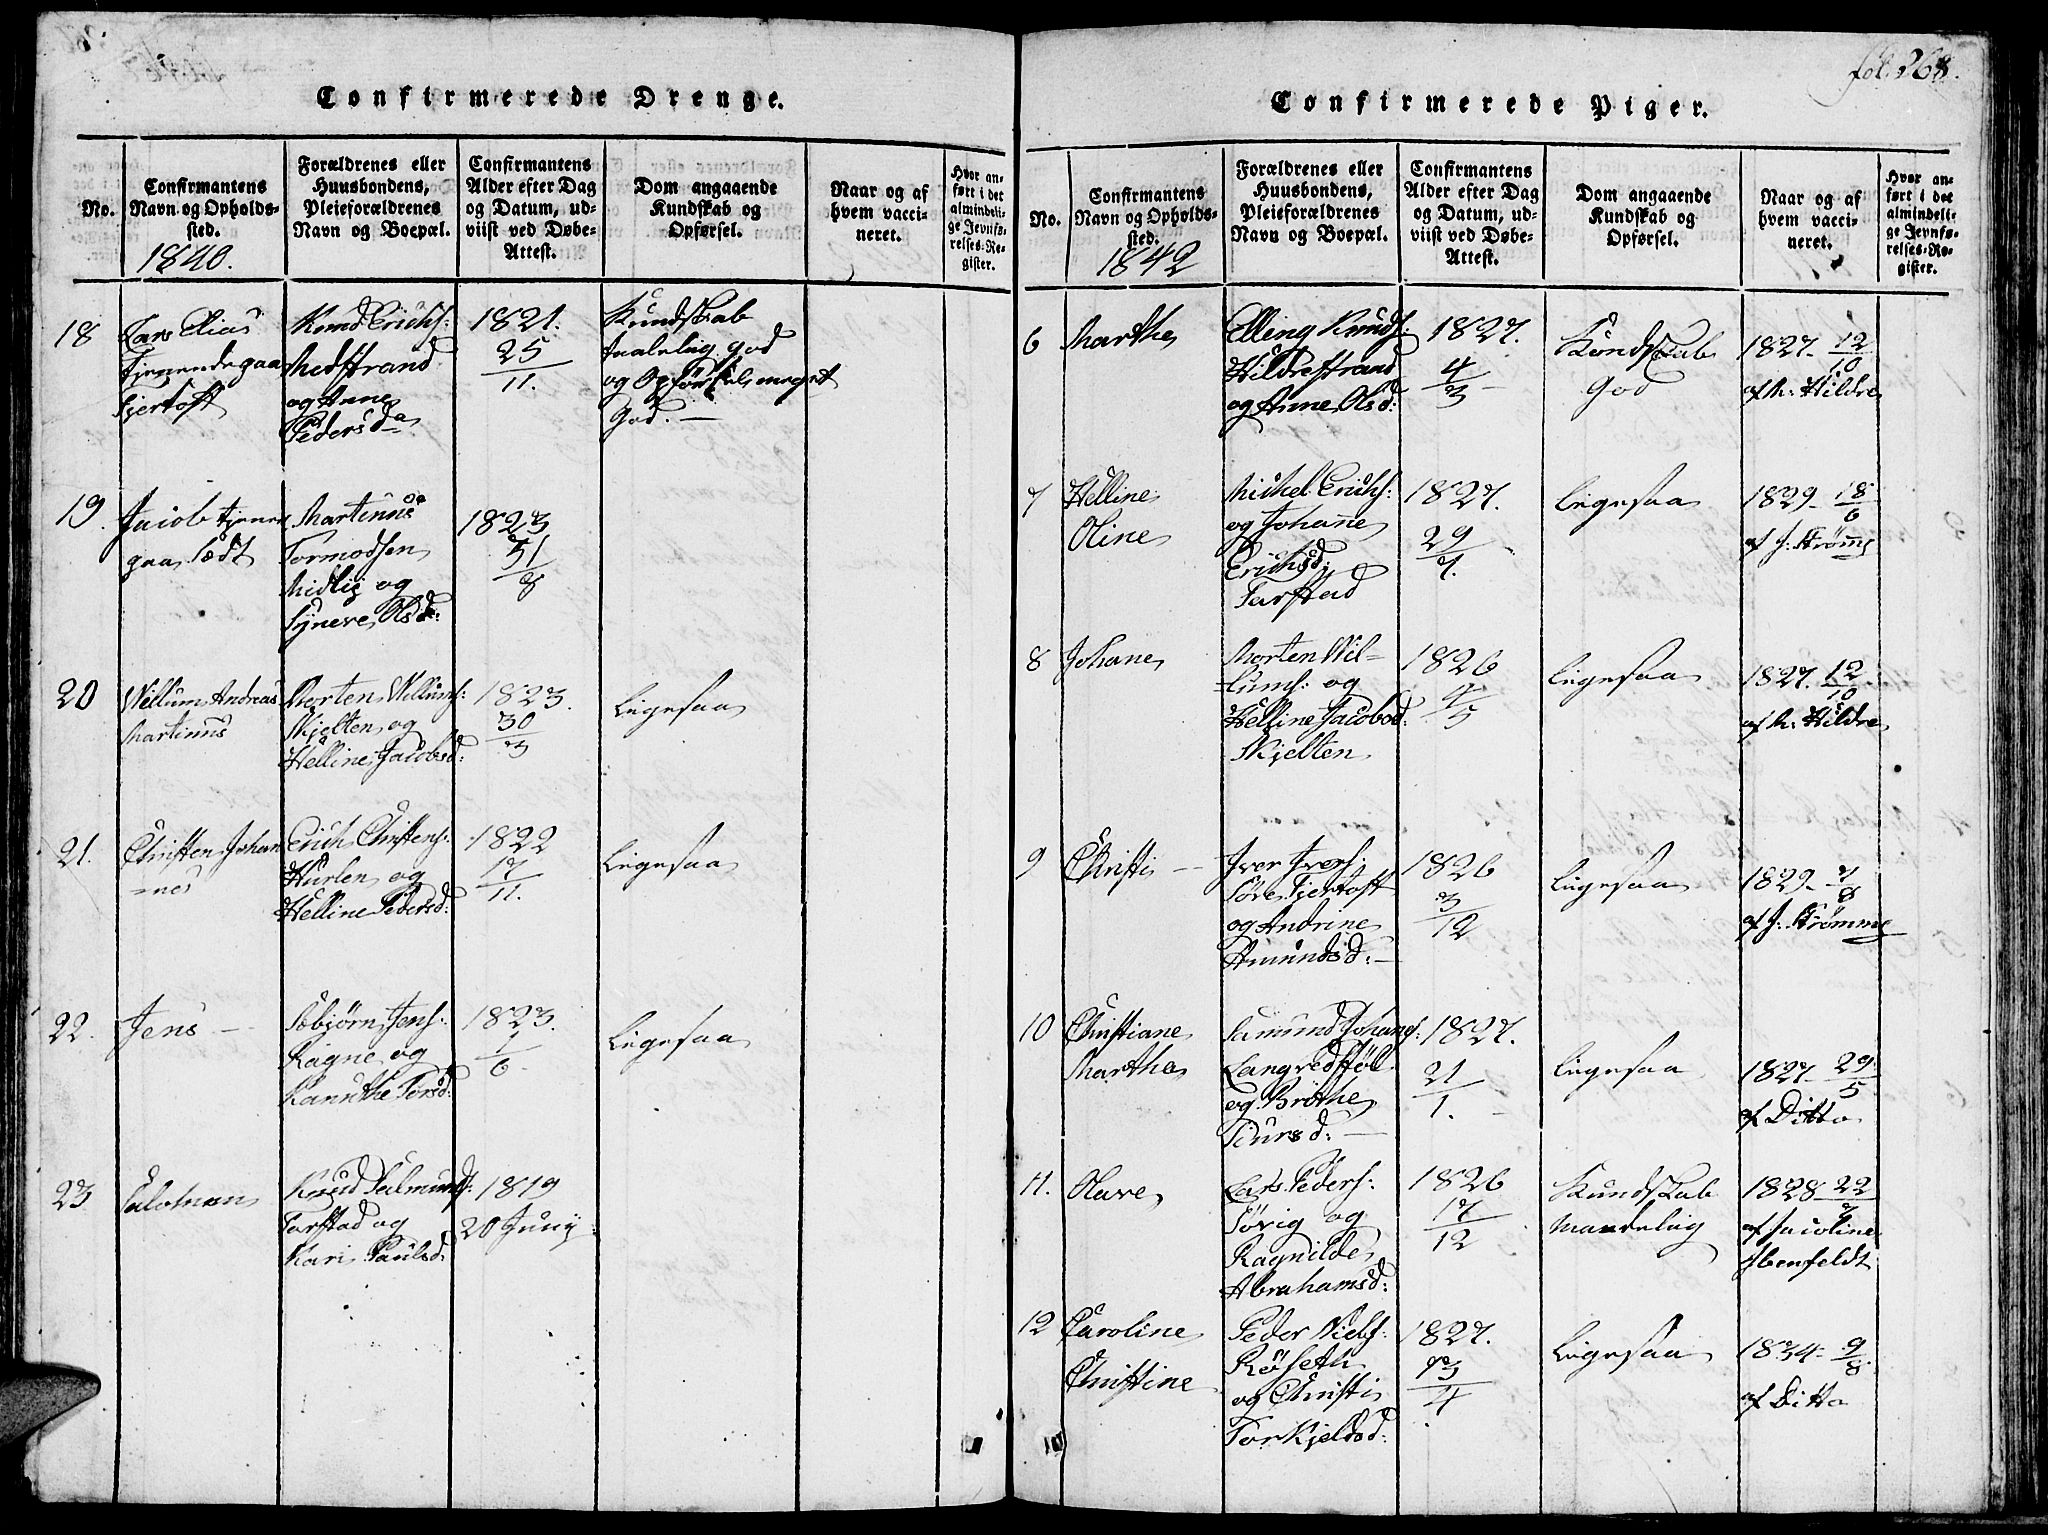 Confirmerede Drenge.
No.
Confirmantens
Navn og Opholds-
sted.
1840.
Forældrenes eller
Huusbondens,
Pleieforældrenes
Navn og Boepæl.
Confirmantens
Alder efter Dag
og Datum, ud-
viist ved Døbe-
Attest.
Dom angaaende
Kundskab og
Opførsel.
Naar og af
hvem vacci-
neret.
Hvor an-
ført i det
almindeli-
ge Jevnfø-
relses-Re-
gister.
18
Lars Elias
tjenende paa
Fjertoft
Knud Erichs:
Medstrand
og Anne
Pedersd
1821.
25
11.
Kundskab
god
og Opførsel meget
God. —
19.
Jacob tjener
paa
Martinus
Tormodsen
Midlie og
Synneve Olsd:
1823
31
8
20
Willum Andreas
Martinus
Morten Willums:
Skjelten og
Helline Jacobsd:
1823.
30
3
Ligesaa
21.
Christen Johan
=nes
Erich Christens:
Hurlen og
Helline Pedersd:
1822
17
11.
Ligesaa
22.
Jens —
Esbjørn Jens:
Ragne og
1823.
1
6
Ligesaa
23
Salomon
Knud Salmunds:
Farstad og
Kari Paulsd
1819
20 Juny
fol. 268.
Confirmerede Piger.
No.
Confirmantens
Navn og Opholds-
sted.
1842
Forældrenes eller
Huusbondens,
Pleieforældrenes
Navn og Boepæl.
Confirmantens
Alder efter Dag
og Datum, ud-
viist ved Døbe-
Attest.
Dom angaaende
Kundskab og
Opførsel.
Naar og af
hvem vacci-
neret.
Hvor an-
ført i det
almindeli-
ge Jevnfø-
relses-Re-
gister.
6
Marthe
Elling Knuds:
Hildrestrand
og Anne Olsd:
1827.
4
3
Kundskab
God
1827- 12
10
af h: Hildre
7
Helline
Oline
Michel Erichs:
og Johanne
Erichsd:
Farstad
1827.
29
7.
Ligesaa
1829- 18
6
af J: Strømme
8
Johane
Morten Wil-
lums: og
Helline Jacobsd:
Skjelten
1826
4
5
Ligesaa
1827. 12
10
af h: Hildre
9
Christi —
Iver Ivers:
Søre Fjertoft
og Andrine
Amundsd: —
1826
3
12
Ligesaa
1829- 7
8
af J: Strømme
10
Christiane
Martha
Samund Johans:
og Brithe
Siursd: —
1827.
21
1.
Ligesaa
1827- 29
5
af Ditto
11.
Olave
Lars Peders:
Søvig og
Ragnilde
Abrahamsd:
1826
17
12
Kundskab
maadelig
1828- 22
7
af Jacoline
Ibenfeldt
12
Caroline
Christine
Peder Niels:
Røseth
og Christi
Torkjeldsd:
1827.
13
4
Ligesaa
1834- 9
8
af Ditto